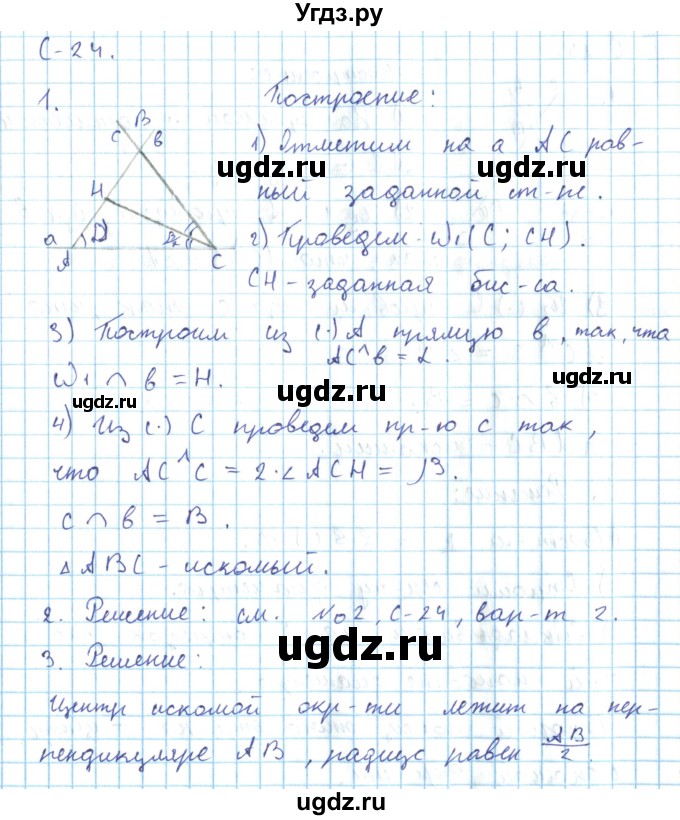 Угдз.ру
С-24.
1.
Построение:
B
c
в
H
a
A
C
1) Отметим на a AC рав-
ugdz.ru ugdz.ru
ный заданной ст-не.
2) Проведем w₁(C; CH).
CH-заданная бис-са.
3) Построим из (·) A прямую в, так, что
AC^в = α.
w₁ ∩ в = H.
ugdz.ru ugdz.ru
4) Из (·) C проведем пр-ю c так,
что AC^c = 2·∠ACH = β.
c ∩ в = B.
△ABC - искомый.
2. Решение: см. №2, С-24, вар-т 2.
ugdz.ru
3. Решение:
Центр искомой окр-ти лежит на пер-
пендикуляре AB, радиус равен AB/2.
ugdz.ru
ugdz.ru